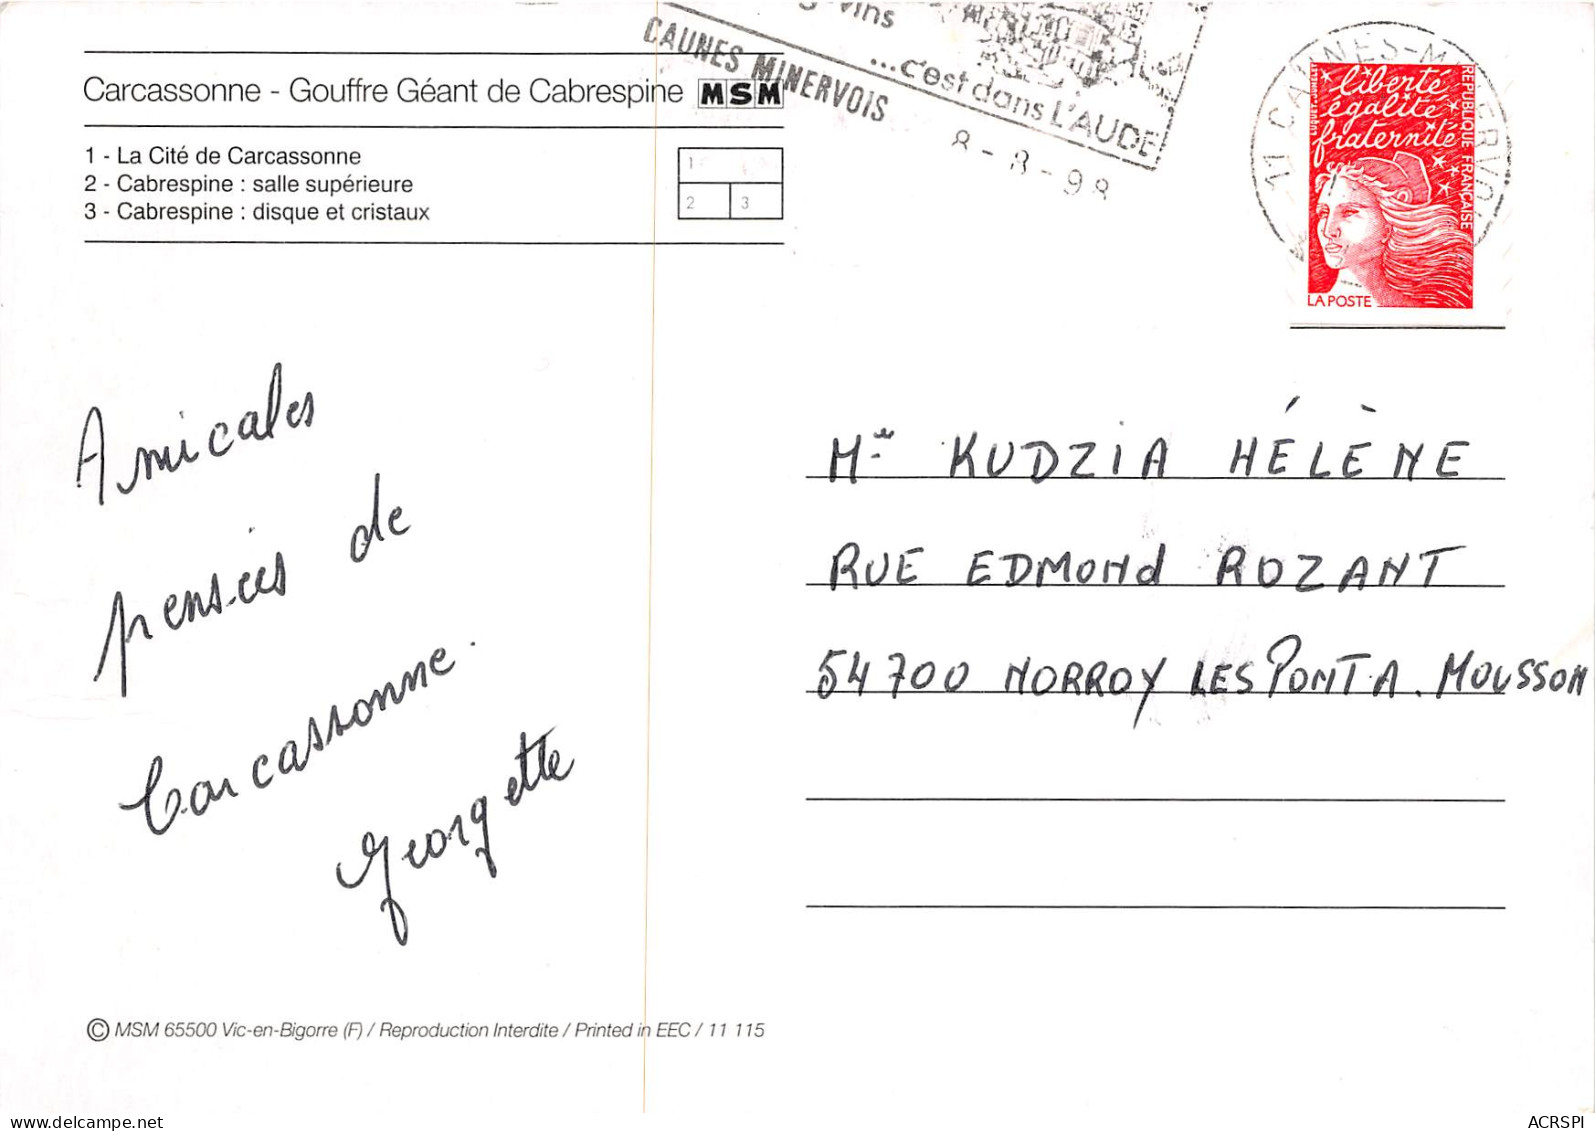 Carcassonne - Gouffre Géant de Cabrespine MSM
1 - La Cité de Carcassonne
2 - Cabrespine : salle supérieure
3 - Cabrespine : disque et cristaux
1
2 3
vins
...c'est dans L'AUDE
CAUNES MINERVOIS
8-8-98
11 CAUNES-MINERVOIS
liberté
égalité
fraternité
RÉPUBLIQUE FRANÇAISE
LA POSTE
Amicales
pensées de
Carcassonne.
Georgette
Mme KUDZIA HÉLÈNE
RUE EDMONd ROZANT
54700 NORROY LES PONT A. MOUSSON
© MSM 65500 Vic-en-Bigorre (F) / Reproduction Interdite / Printed in EEC / 11 115
Delcampe.net
ACRSPI